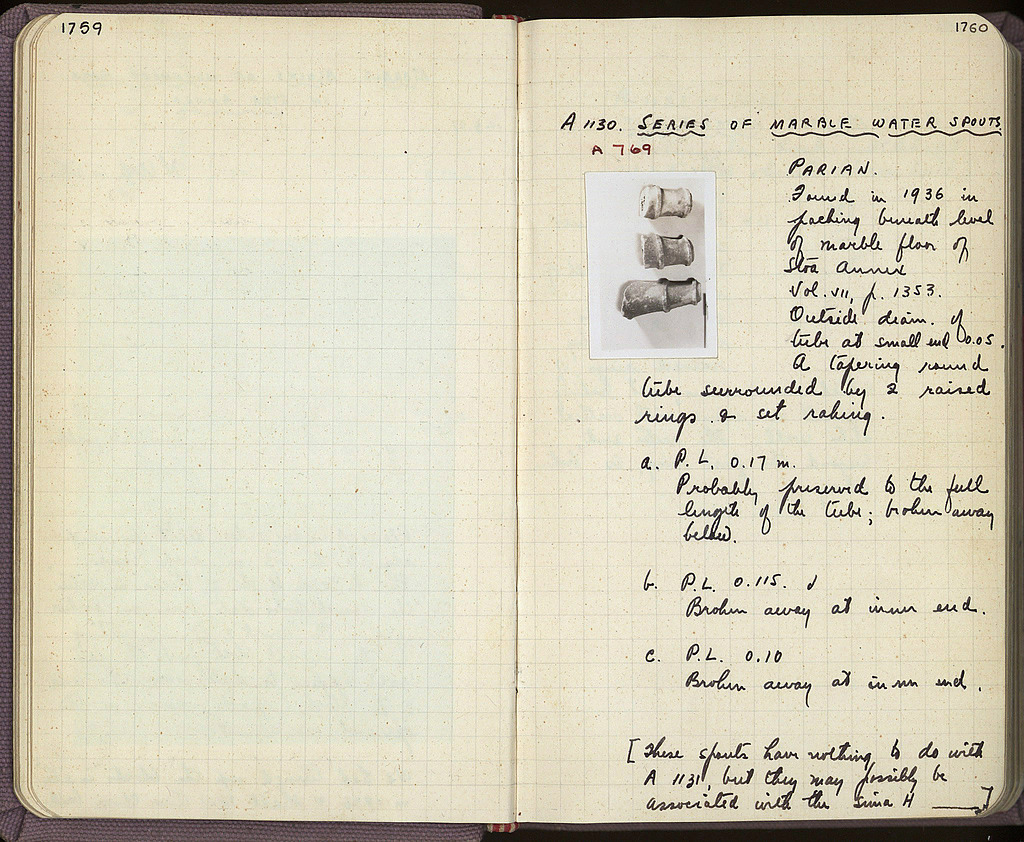 1759
1760
A 1130. SERIES OF MARBLE WATER SPOUTS
A 769
PARIAN.
Found in 1936 in
packing beneath level
of marble floor of
Stoa Annex
Vol. VII, p. 1353.
Outside diam. of
tube at small end 0.05.
A tapering round
tube surrounded by 2 raised
rings & set raking.
a. P.L. 0.17 m.
Probably preserved to the full
length of the tube; broken away
below.
b. P.L. 0.115.
Broken away at inner end.
c. P.L. 0.10
Broken away at inner end.
[These spouts have nothing to do with
A 1131, but they may possibly be
associated with the sima H ——]